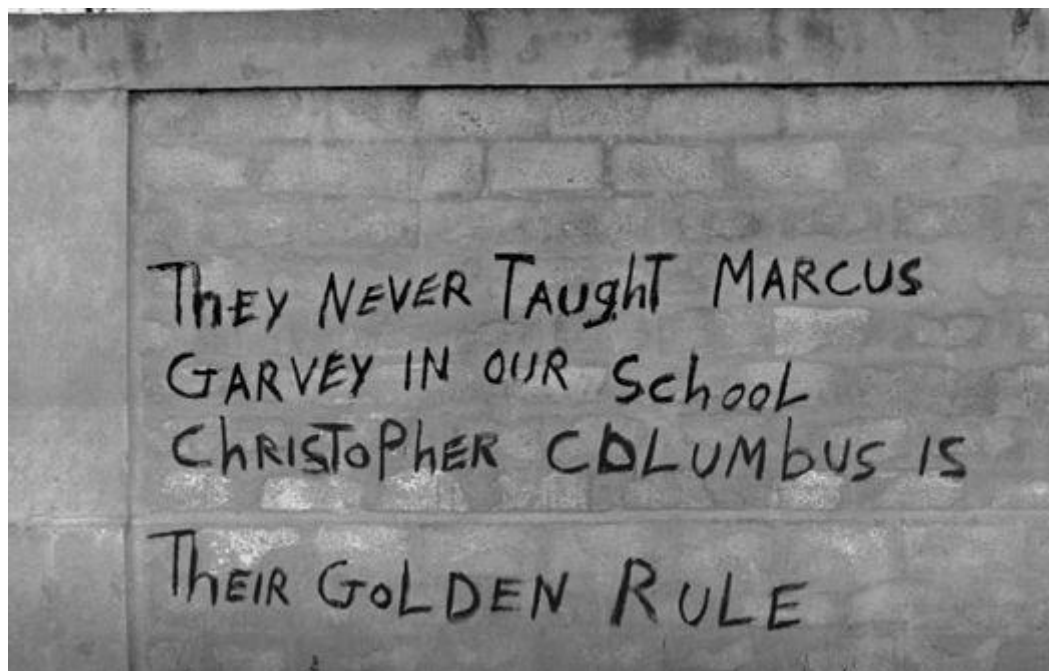 ThEY NEVER TAughT MARCUS
GARVEY IN OUR SchooL
ChRISToPhER COLUMbUS IS
ThEIR GoLDEN RULE